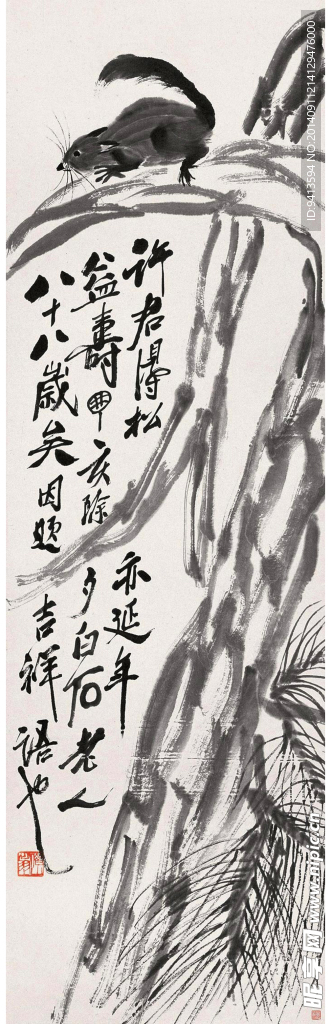 許君得松亦延年
益壽 亥除夕白石老人
八十八歲矣因題吉祥語也
ID:9413594 NO:20140911214129476000
昵享网 www.nipic.cn